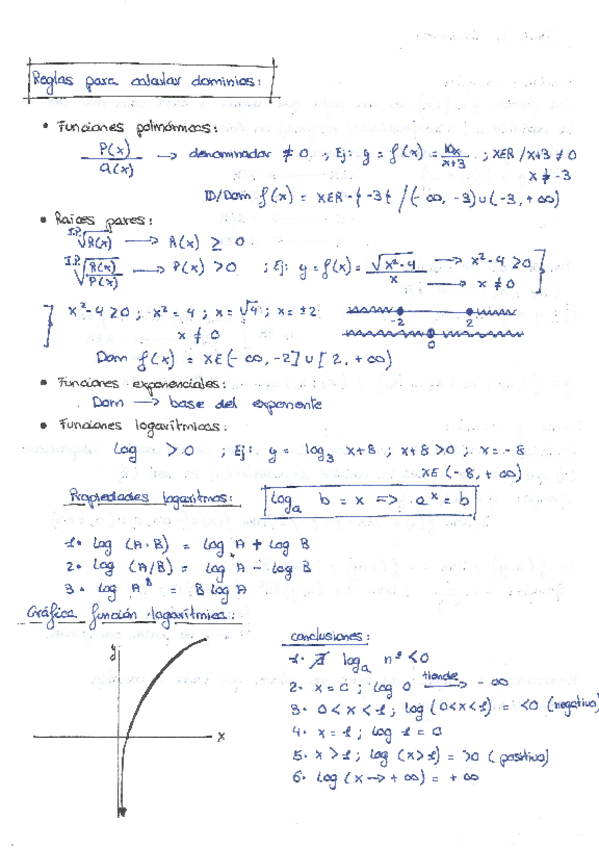 Reglas para calcular dominios:
• Funciones polinómicas:
P(x)/Q(x) → denominador ≠ 0 ; Ej: y = f(x) = 10x/x+3 ; x∈R / x+3 ≠ 0
x ≠ -3
D/Dom f(x) = x∈R - {-3} / (-∞, -3) ∪ (-3, +∞)
• Raíces pares:
I.P.√R(x) → R(x) ≥ 0
I.P.√R(x)/P(x) → P(x) > 0 ; Ej: y = f(x) = √x²-4/x → x²-4 ≥ 0
→ x ≠ 0
x²-4 ≥ 0 ; x² = 4 ; x = √4 ; x = ±2
-2 2
x ≠ 0
0
Dom f(x) = x∈(-∞, -2] ∪ [2, +∞)
• Funciones exponenciales:
Dom → base del exponente
• Funciones logarítmicas:
Log > 0 ; Ej: y = log₃ x+8 ; x+8 > 0 ; x = -8
x∈(-8, +∞)
Propiedades logaritmos: Log_a b = x => aˣ = b
1• Log (A·B) = Log A + Log B
2• Log (A/B) = Log A - Log B
3• Log Aᴮ = B Log A
Gráfica función logarítmica:
y
x
conclusiones:
1• ∄ log_a nº < 0
2• x = 0 ; Log 0 tiende → -∞
3• 0 < x < 1 ; log (0<x<1) = <0 (negativo)
4• x = 1 ; Log 1 = 0
5• x > 1 ; Log (x>1) = >0 (positivo)
6• Log (x → +∞) = +∞